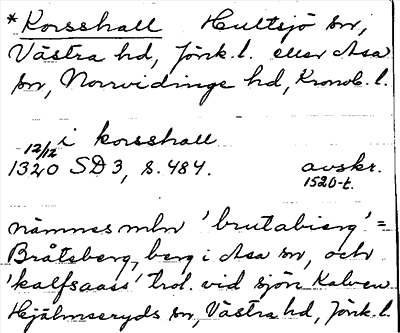 * Korsshall Hultsjö sn,
Västra hd, Jönk. l. eller Asa
sn, Norrvidinge hd, Kronob. l.
i korsshall
12/12
1320 SD 3, s. 484. avskr.
1520-t.
nämnes mln 'brutabierg' =
Bråtsberg, berg i Asa sn, och
'kalfsaass' trol. vid sjön Kalven
Hjälmseryds sn, Västra hd, Jönk. l.